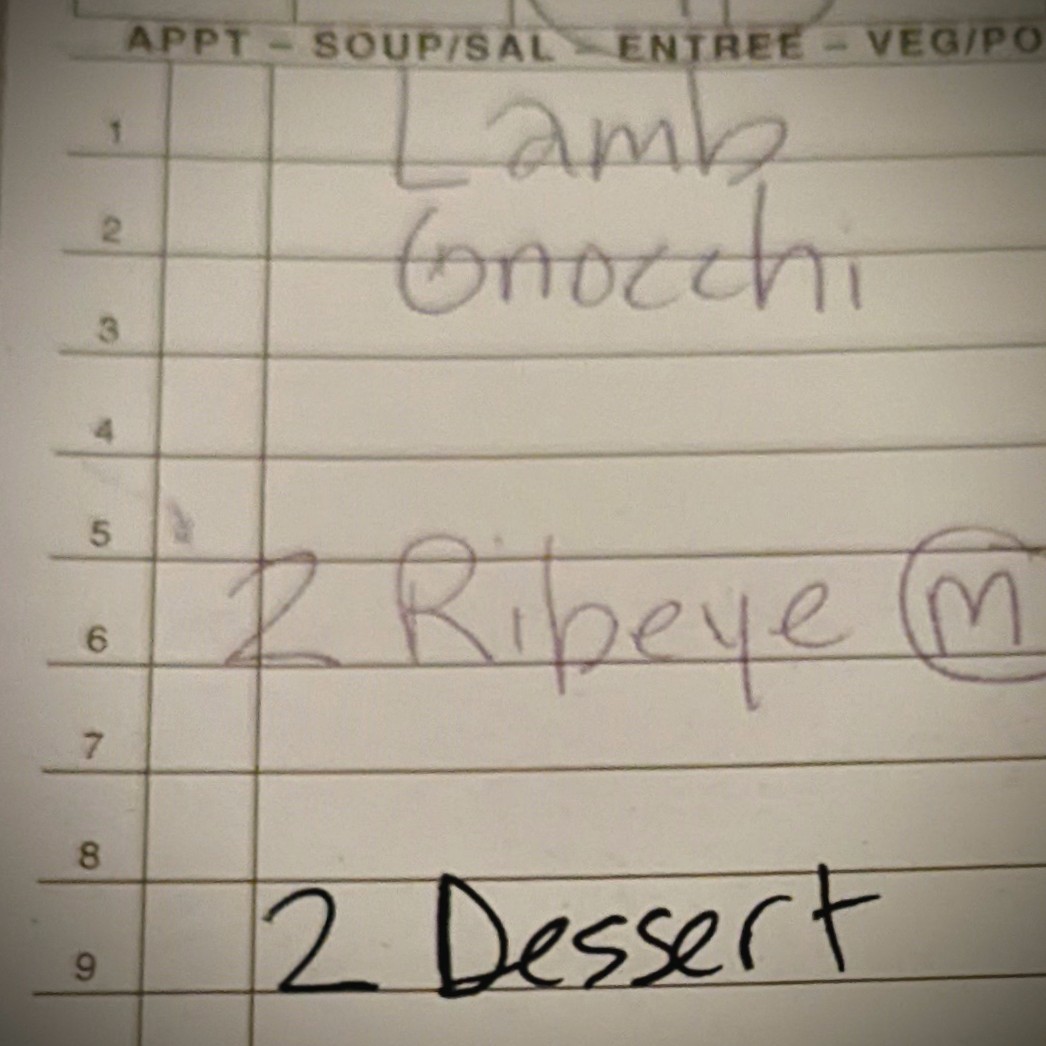 APPT – SOUP/SAL – ENTREE – VEG/PO
1 Lamb
2 Gnocchi
3
4
5
6 2 Ribeye M
7
8
9 2 Dessert